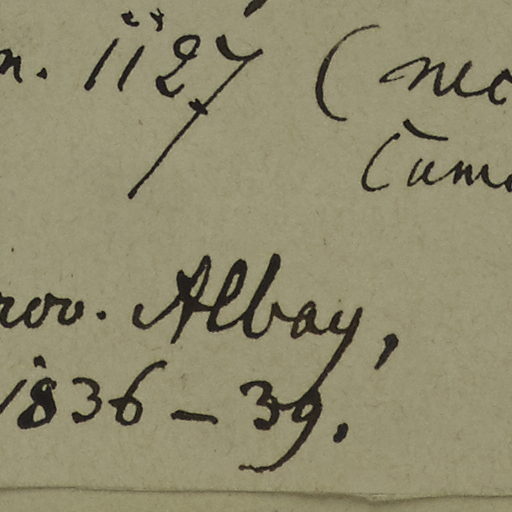 n. 1127 (nec
Cumi
rov. Albay,
1836-39.